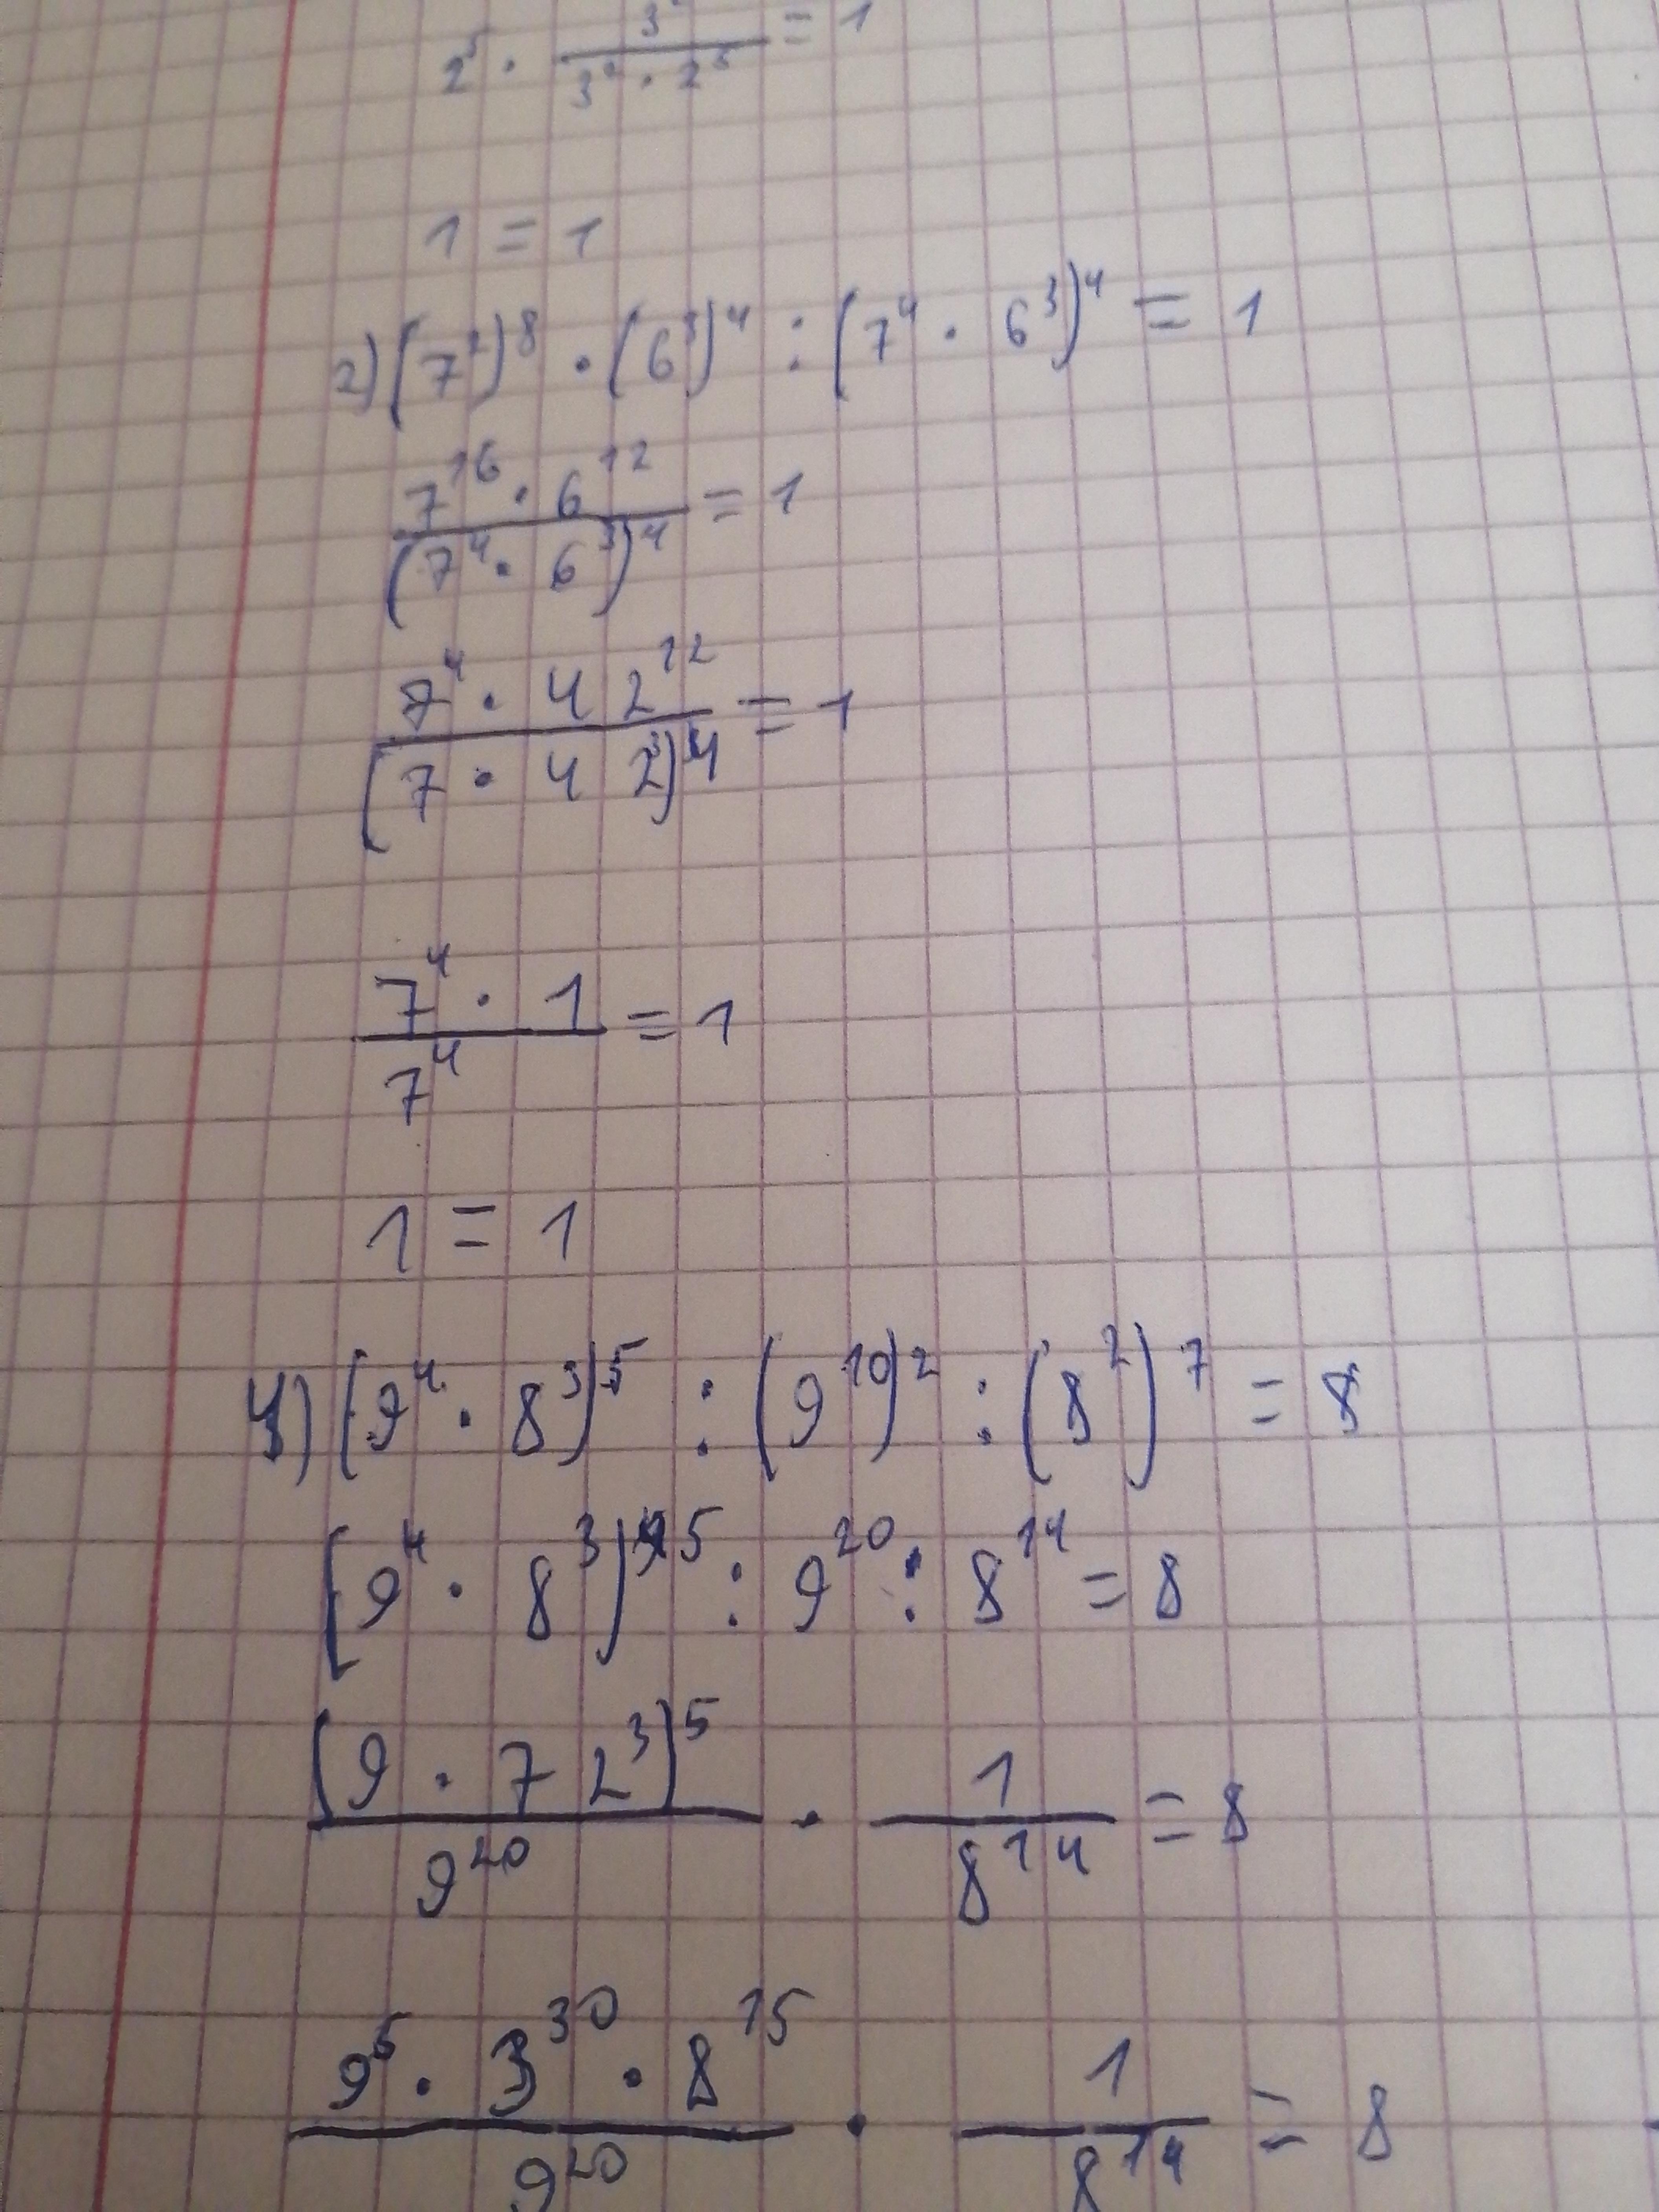 2⁵ · 3⁴/(3⁴ · 2⁵) = 1
1 = 1
2) (7²)⁸ · (6³)⁴ : (7⁴ · 6³)⁴ = 1
(7¹⁶ · 6¹²)/(7⁴ · 6³)⁴ = 1
(7⁴ · 42¹²)/(7 · 42³)⁴ = 1
(7⁴ · 1)/7⁴ = 1
1 = 1
4) (9⁴ · 8³)⁵ : (9¹⁰)² : (8²)⁷ = 8
(9⁴ · 8³)⁵ : 9²⁰ : 8¹⁴ = 8
(9 · 72³)⁵/9²⁰ · 1/8¹⁴ = 8
(9⁵ · 3³⁰ · 8¹⁵)/9²⁰ · 1/8¹⁴ = 8